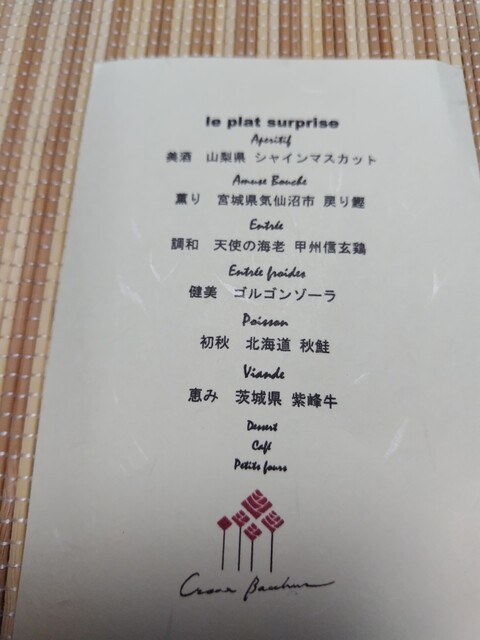 le plat surprise
Aperitif
美酒 山梨県 シャインマスカット
Amuse Bouche
薫り 宮城県気仙沼市 戻り鰹
Entrée
調和 天使の海老 甲州信玄鶏
Entrée froides
健美 ゴルゴンゾーラ
Poisson
初秋 北海道 秋鮭
Viande
恵み 茨城県 紫峰牛
Dessert
Café
Petits fours
Cesar Bacchus